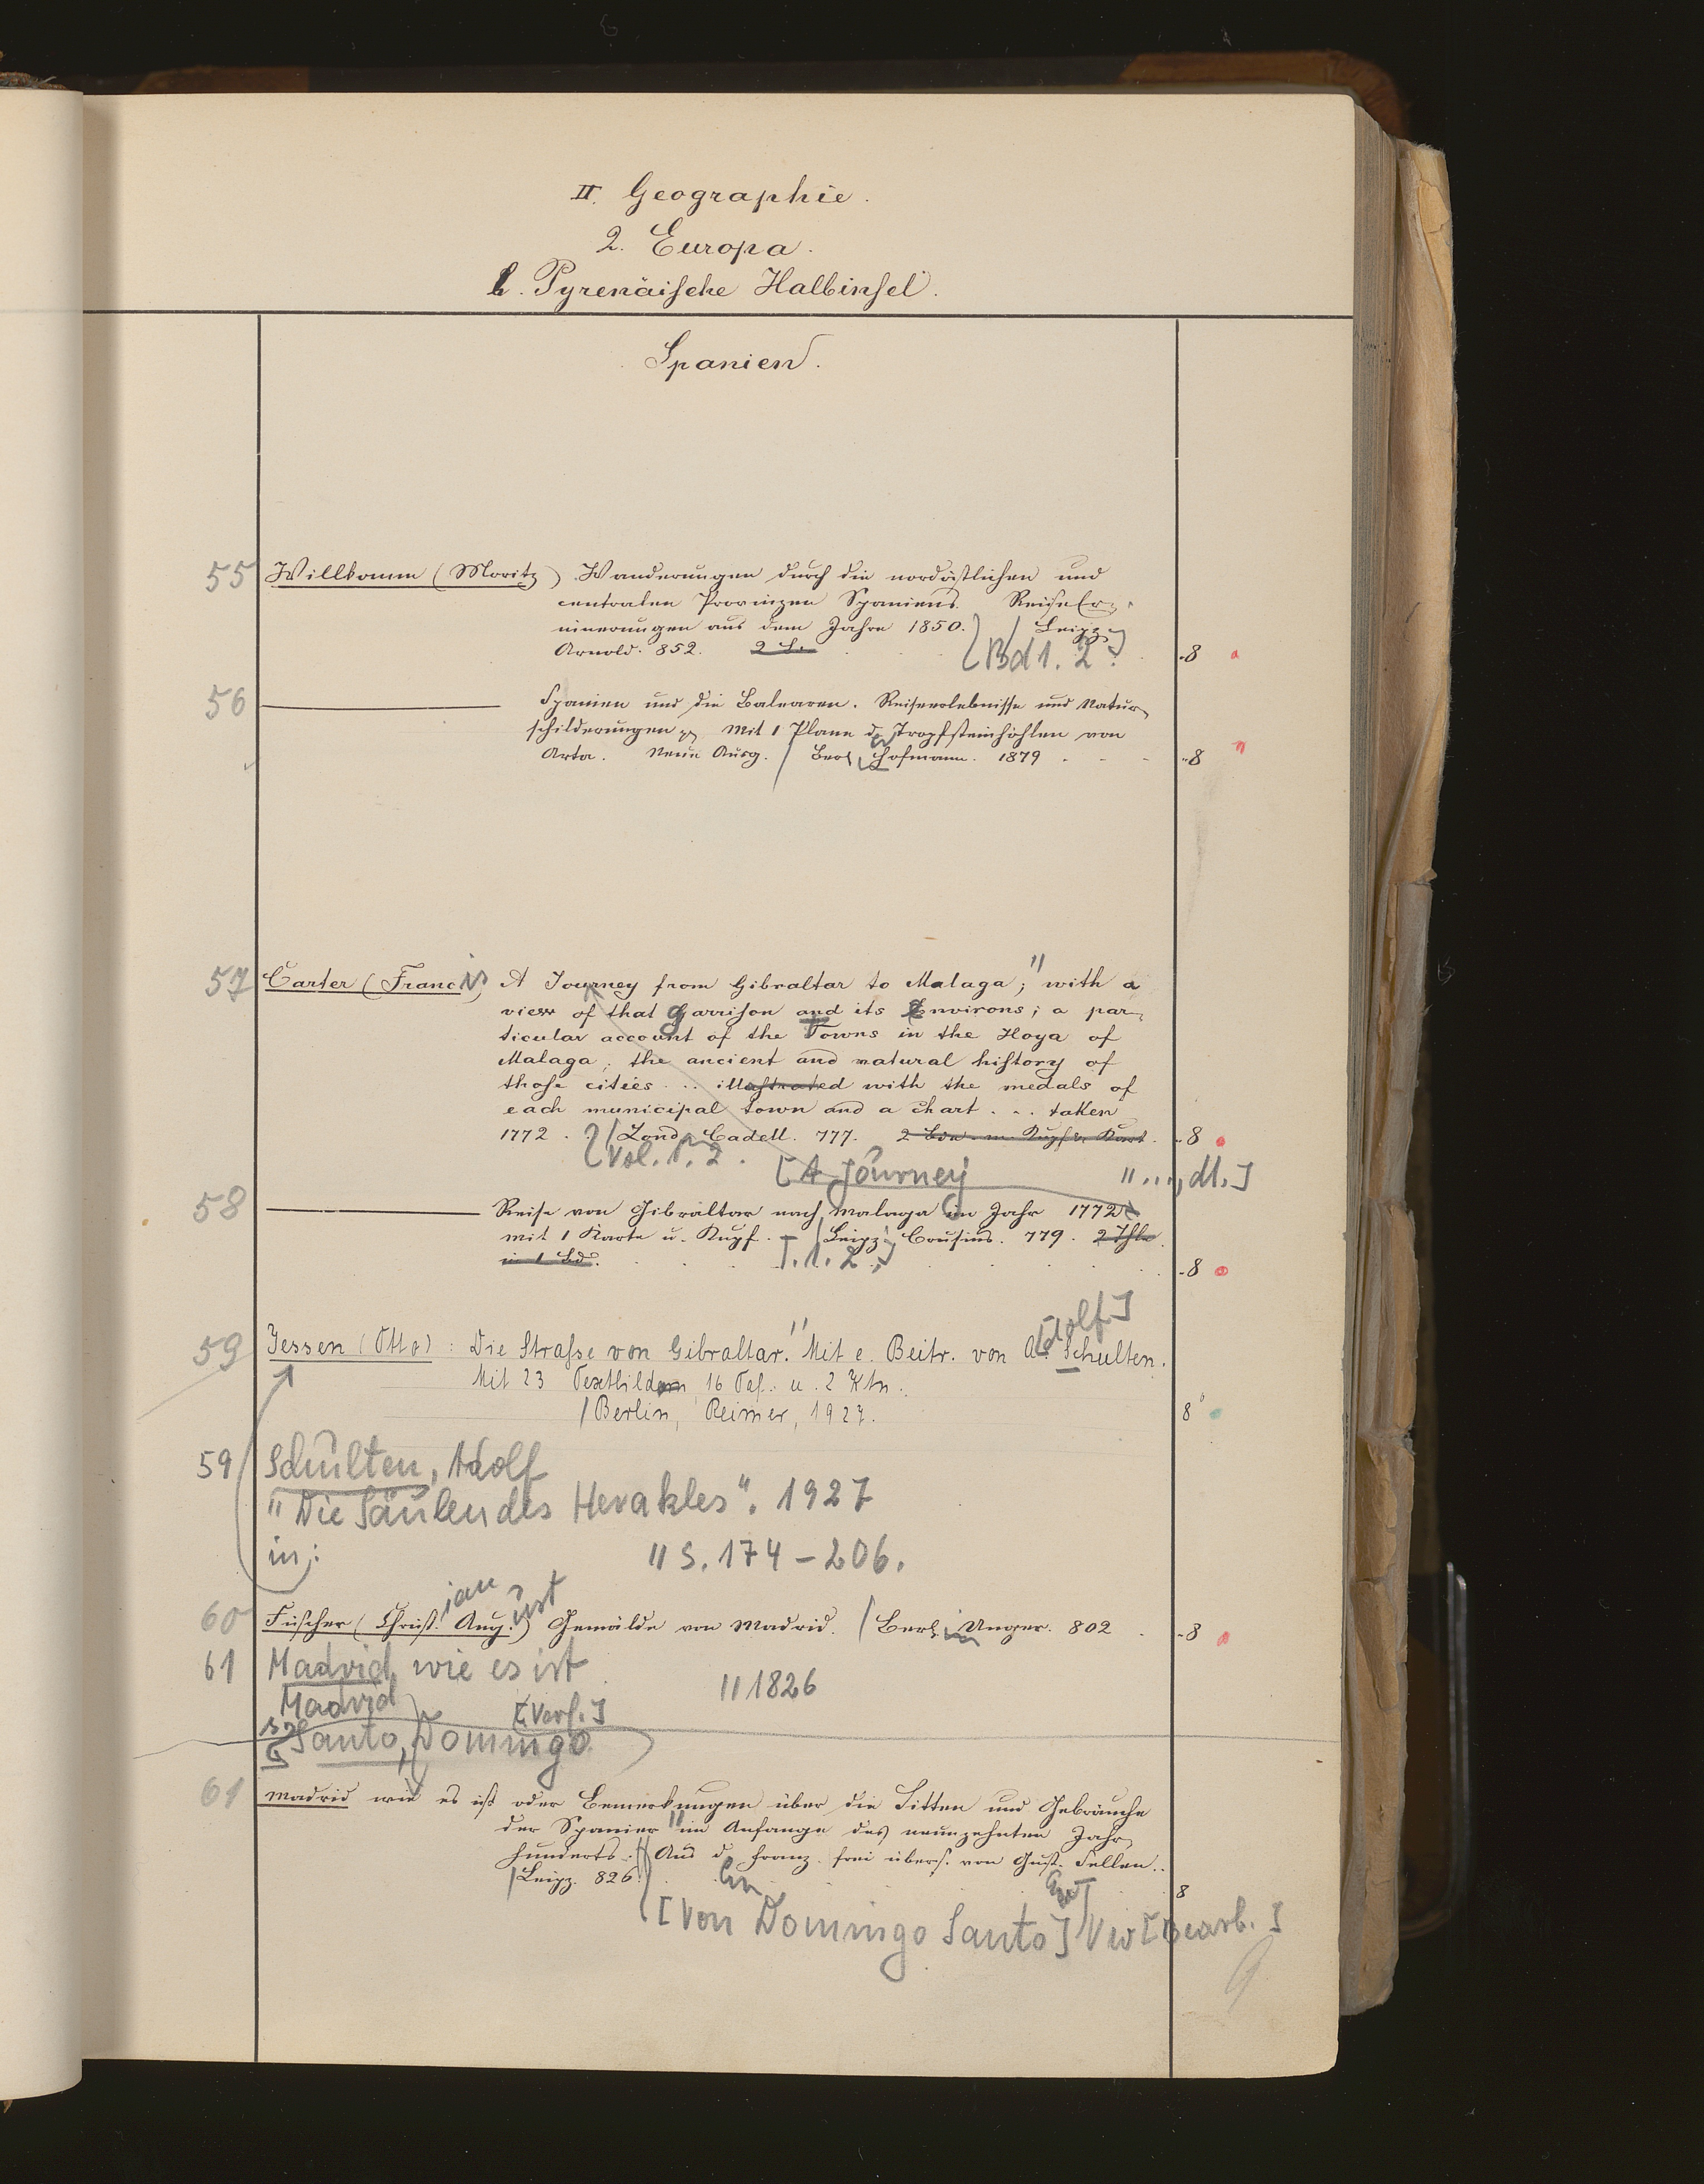 II. Geographie.
2. Europa.
b. Pyrenäische Halbinsel.
Spanien.
55 Willkomm (Moritz) Wanderungen durch die nordöstlichen und
centralen Provinzen Spaniens. ReiseEr-
innerungen aus dem Jahre 1850. / Leipz.
Arnold. 852. 2 B. [Bd 1. 2.] 8
56 ——— Spanien und die Balearen. Reiseerlebnisse und Natur-
schilderungen Mit 1 Plane der Tropfsteinhöhlen von
Arta. Neue Ausg. / Berl. Hofmann. 1879 8
57 Carter (Francis) A Journey from Gibraltar to Malaga; " with a
view of that garrison and its Environs; a par-
ticular account of the Towns in the Hoya of
Malaga; the ancient and natural history of
those cities ... illustrated with the medals of
each municipal town and a chart ... taken
1772. / Lond. Cadell. 777. 2 Bde. m. Kupf. u. Kart. 8
Vol. 1. 2. [A Journey " ..., dt.]
58 ——— Reise von Gibraltar nach Malaga im Jahr 1772
mit 1 Karte u. Kupf. / Leipz. Crusius. 779. 2 Thle
in 1 Bd. T. 1. 2. ] 8
59 Jessen (Otto): Die Straße von Gibraltar. " Mit e. Beitr. von A[dolf] Schulten.
Mit 23 Textbildern 16 Taf. u. 2 Ktn.
/ Berlin, Reimer, 1927. 8°
59 Schulten, Adolf
"Die Säulen des Herakles". 1927
in: " S. 174-206.
60 Fischer (Christian August) Gemälde von Madrid. / Berlin Unger. 802 8
61 Madrid, wie es ist
" 1826
Madrid
Santo, Domingo [Verf.]
61 Madrid wie es ist oder Bemerkungen über die Sitten und Gebräuche
der Spanier " im Anfange des neunzehnten Jahr-
hunderts. Aus d. Franz. frei übers. von Gust. Sellen.
/ Leipz. 826. 8
[Von Domingo Santo] Vw [Bearb.]